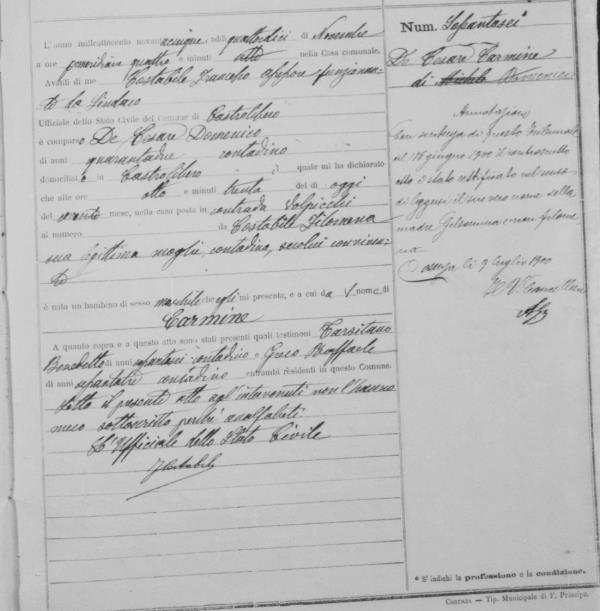 L'anno milleottocento novantacinque, addì quattordici di Novembre
a ore pomeridiane quattro e minuti otto nella Casa comunale.
Avanti di me Costabile Francesco assessore funzionan-
te da Sindaco
Uffiziale dello Stato Civile del Comune di Castrolibero
è comparso De Cesare Domenico
di anni quarantadue contadino
domiciliato in Castrolibero il quale mi ha dichiarato
che alle ore otto e minuti trenta del dì oggi
del corrente mese, nella casa posta in contrada Volpicchi
al numero da Costabile Filomena
sua legittima moglie, contadina, secolui conviven-
te
è nato un bambino di sesso maschile che egli mi presenta, e a cui dà il nome di
Carmine
A quanto sopra e a questo atto sono stati presenti quali testimoni Tarsitano
Benedetto di anni contadino e Greco Raffaele
di anni contadino entrambi residenti in questo Comune.
Letto il presente atto agl'intervenuti non l'hanno
meco sottoscritto perché analfabeti.
L'Uffiziale dello Stato Civile
Costabile
Num. Sepantasei
De Cesare Carmine
di Michele Domenico
Annotazione
Con sentenza di questo Tribunale
del 18 giugno 1900 il controscritto
atto è stato rettificato nel senso
di leggersi il vero nome della
madre Gelsomina e non Filome
na
Cosenza lì 9 luglio 1900
Il V.
* S'indichi la professione o la condizione.
Cosenza — Tip. Municipale di F. Principe.